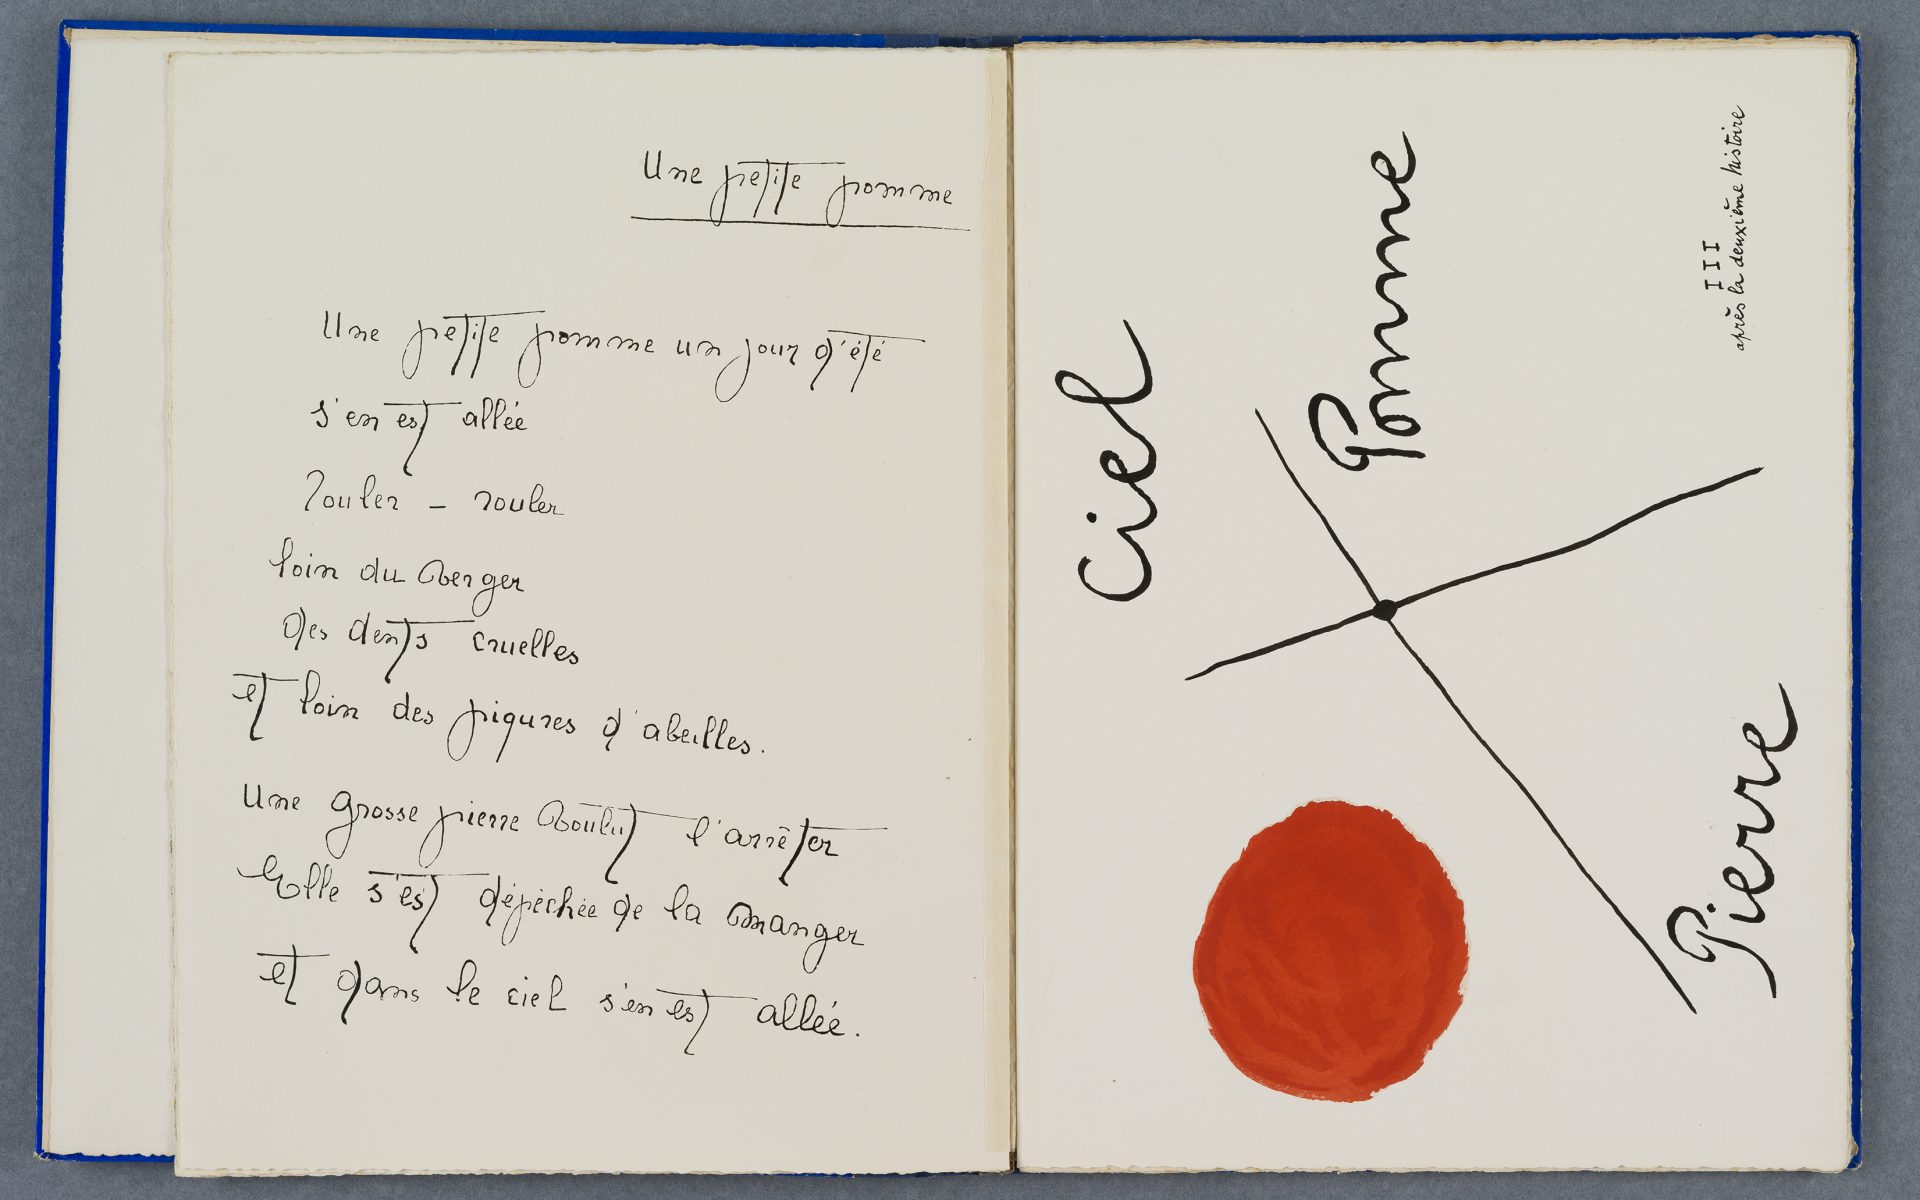 Une petite pomme
Une petite pomme un jour d'été
s'en est allée
rouler – rouler
loin du verger
des dents cruelles
et loin des piqures d'abeilles.
Une grosse pierre voulut l'arrêter
Elle s'est dépéchée de la manger
et dans le ciel s'en est allée.
Ciel
Pomme
Pierre
III
après la deuxième histoire